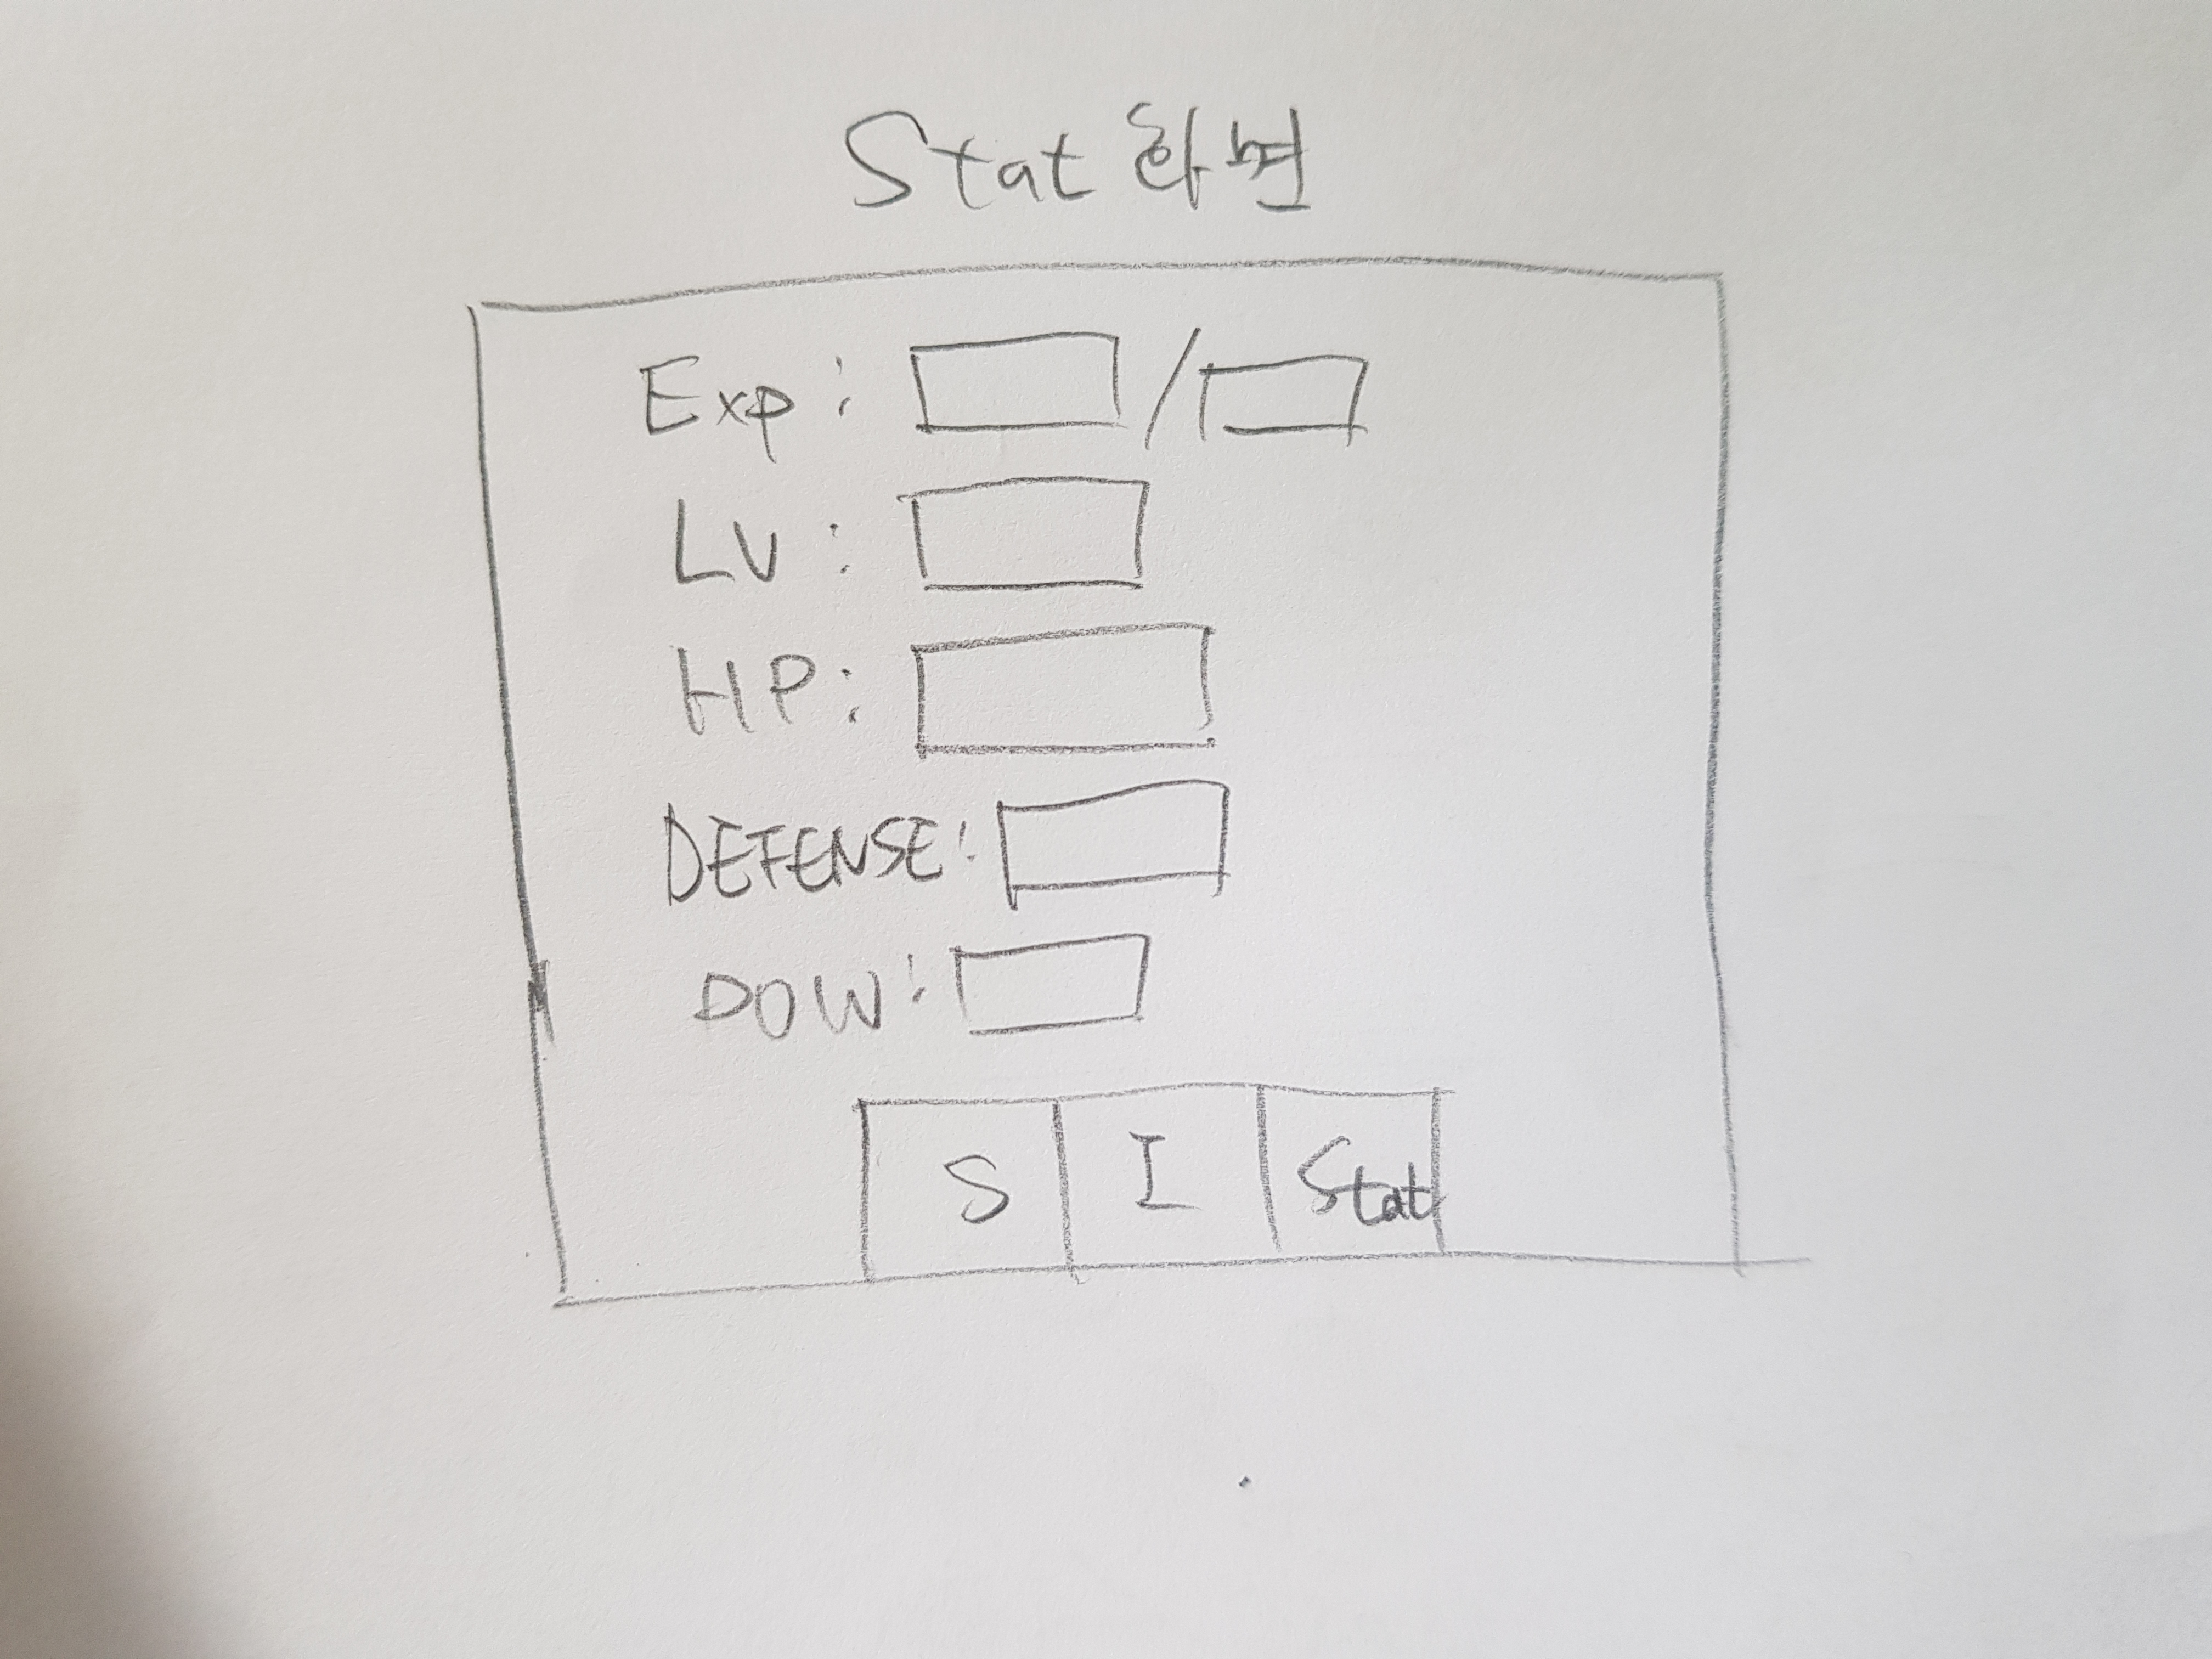 Stat 화면
Exp : /
LV :
HP :
DEFENSE :
S I Stat